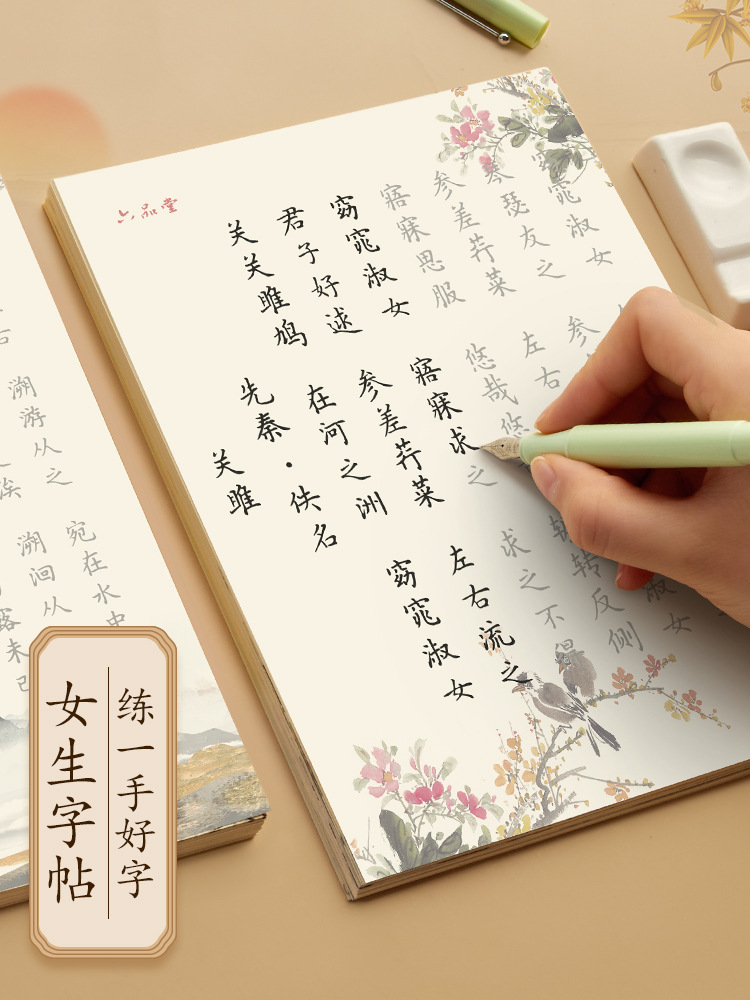 六品堂
关雎
先秦·佚名
关关雎鸠 在河之洲 窈窕淑女
君子好逑 参差荇菜 左右流之
窈窕淑女 寤寐求之 求之不得
寤寐思服 悠哉悠 转反侧
参差荇菜 左右 淑女
琴瑟友之 参
窈窕淑女
溯游从之
溯洄从
宛在水中
女生字帖
练一手好字